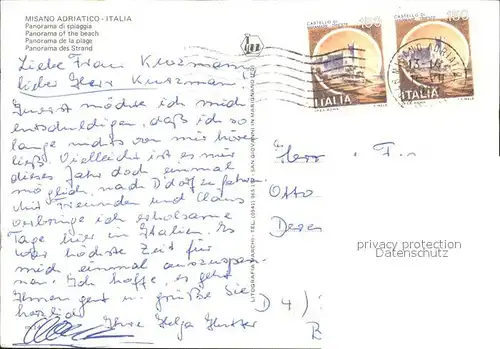 MISANO ADRIATICO - ITALIA
Panorama di spiaggia
Panorama of the beach
Panorama de la plage
Panorama des Strand
Liebe Frau Kurzmann
lieber Herr Kurzmann!
Zuerst möchte ich mich
entschuldigen, daß ich so
lange nichts von mir hören
ließ. Vielleicht ist es mir
dieses Jahr doch einmal
möglich, nach D'dorf zu fahren.
Mit Freunden und Claus
verbringe ich erholsame
Tage hier in Italien. Es
war höchste Zeit für
mich einmal auszuspan-
nen. Ich hoffe, es geht
Ihnen gut u. grüße Sie
herzlich
Ihre Helga
LITOGRAFIA MARCHI - TEL. (0541) SAN GIOVANNI IN MARIGNANO
CASTELLO DI 150
CASTELLO DI 150
ITALIA
ITALIA
MISANO ADRIATICO
Herr F.
Otto
D 4)
privacy protection
Datenschutz